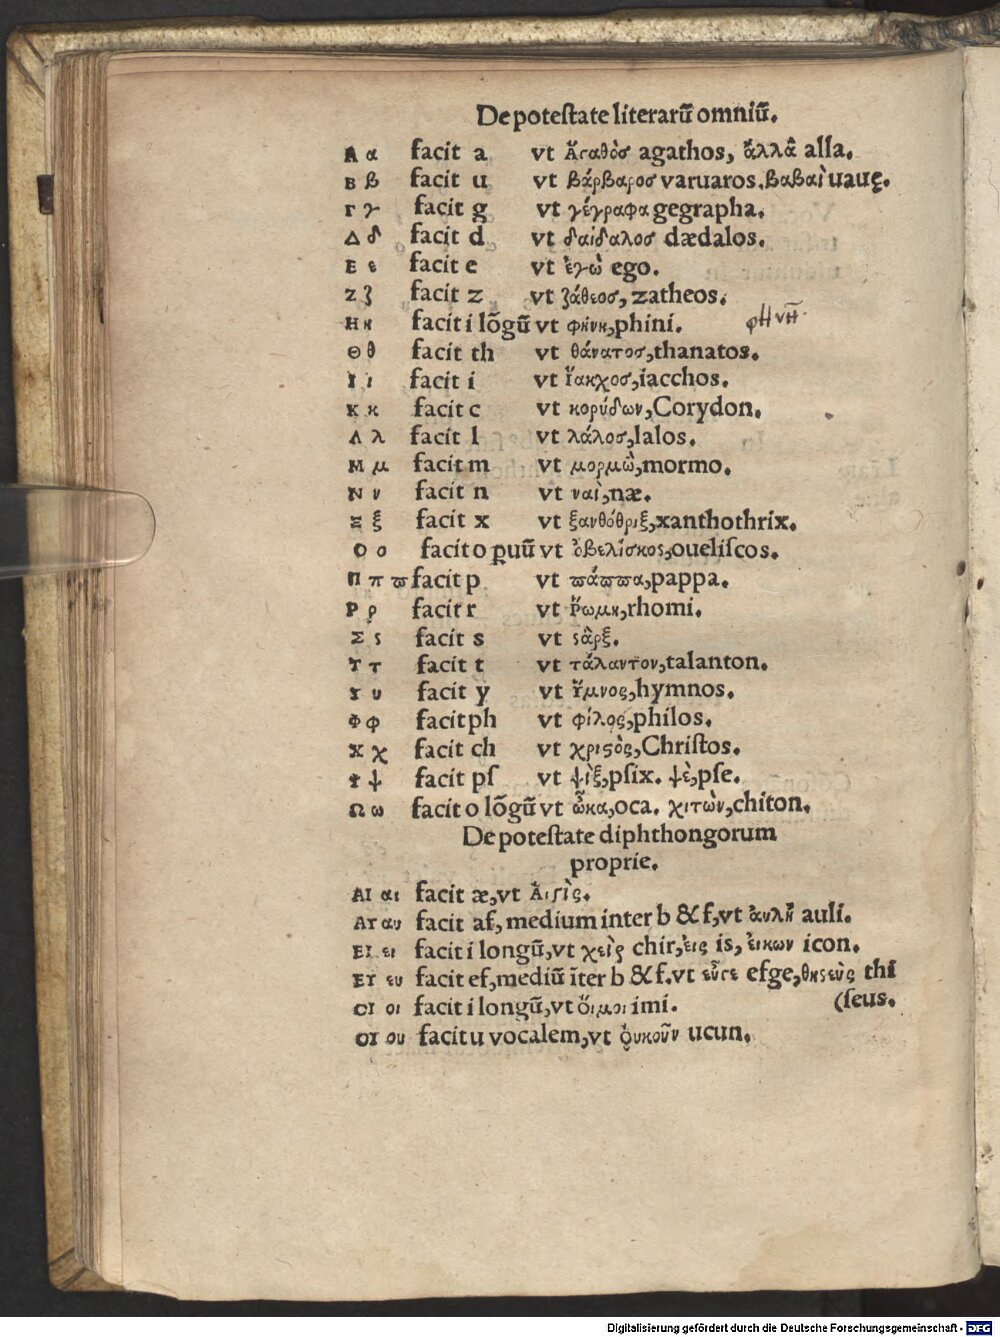 De poteſtate literarũ omniũ.
Α α facit a vt ἄγαθὸσ agathos, ἄλλὰ alla.
Β β facit u vt βάρβαροσ varuaros. βαβαὶ uauę.
Γ γ facit g vt γέγραφα gegrapha.
Δ δ facit d vt δαίδαλοσ dædalos.
Ε ε facit e vt ἐγὼ ego.
Ζ ζ facit z vt ζάθεοσ, zatheos.
Η η facit i lõgũ vt φήνη, phini. φΗνΗ
Θ θ facit th vt θάνατοσ, thanatos.
Ι ι facit i vt ἴακχοσ, iacchos.
Κ κ facit c vt κορύδων, Corydon.
Λ λ facit l vt λάλοσ, lalos.
Μ μ facit m vt μορμὼ, mormo.
Ν ν facit n vt ναὶ, næ.
Ξ ξ facit x vt ξανθόθριξ, xanthothrix.
Ο ο facit o ꝑuũ vt ὀβελίσκος, oueliſcos.
Π π ϖ facit p vt ϖάϖϖα, pappa.
Ρ ρ facit r vt ῥώμη, rhomi.
Σ ς facit s vt ςὰρξ.
Τ τ facit t vt τάλαντον, talanton.
Υ υ facit y vt ὕμνος, hymnos.
Φ φ facit ph vt φίλος, philos.
Χ χ facit ch vt χριϛὸς, Chriſtos.
Ψ ψ facit pſ vt ψὶξ, pſix. ψὲ, pſe.
Ω ω facit o lõgũ vt ὦκα, oca. χιτὼν, chiton.
De poteſtate diphthongorum
proprie.
ΑΙ αι facit æ, vt Ἀιγὶς.
ΑΥ αυ facit af, medium inter b & f, vt ἀυλὴ auli.
ΕΙ ει facit i longũ, vt χεὶρ chir, ἐις is, ἐικων icon.
ΕΥ ευ facit ef, mediũ ĩter b & f. vt εὖγε efge, θησεὺς thi
ΟΙ οι facit i longũ, vt ὄιμοι imi. (ſeus.
ΟΥ ου facit u vocalem, vt ὀυκοῦν ucun.
Digitalisierung gefördert durch die Deutsche Forschungsgemeinschaft - DFG